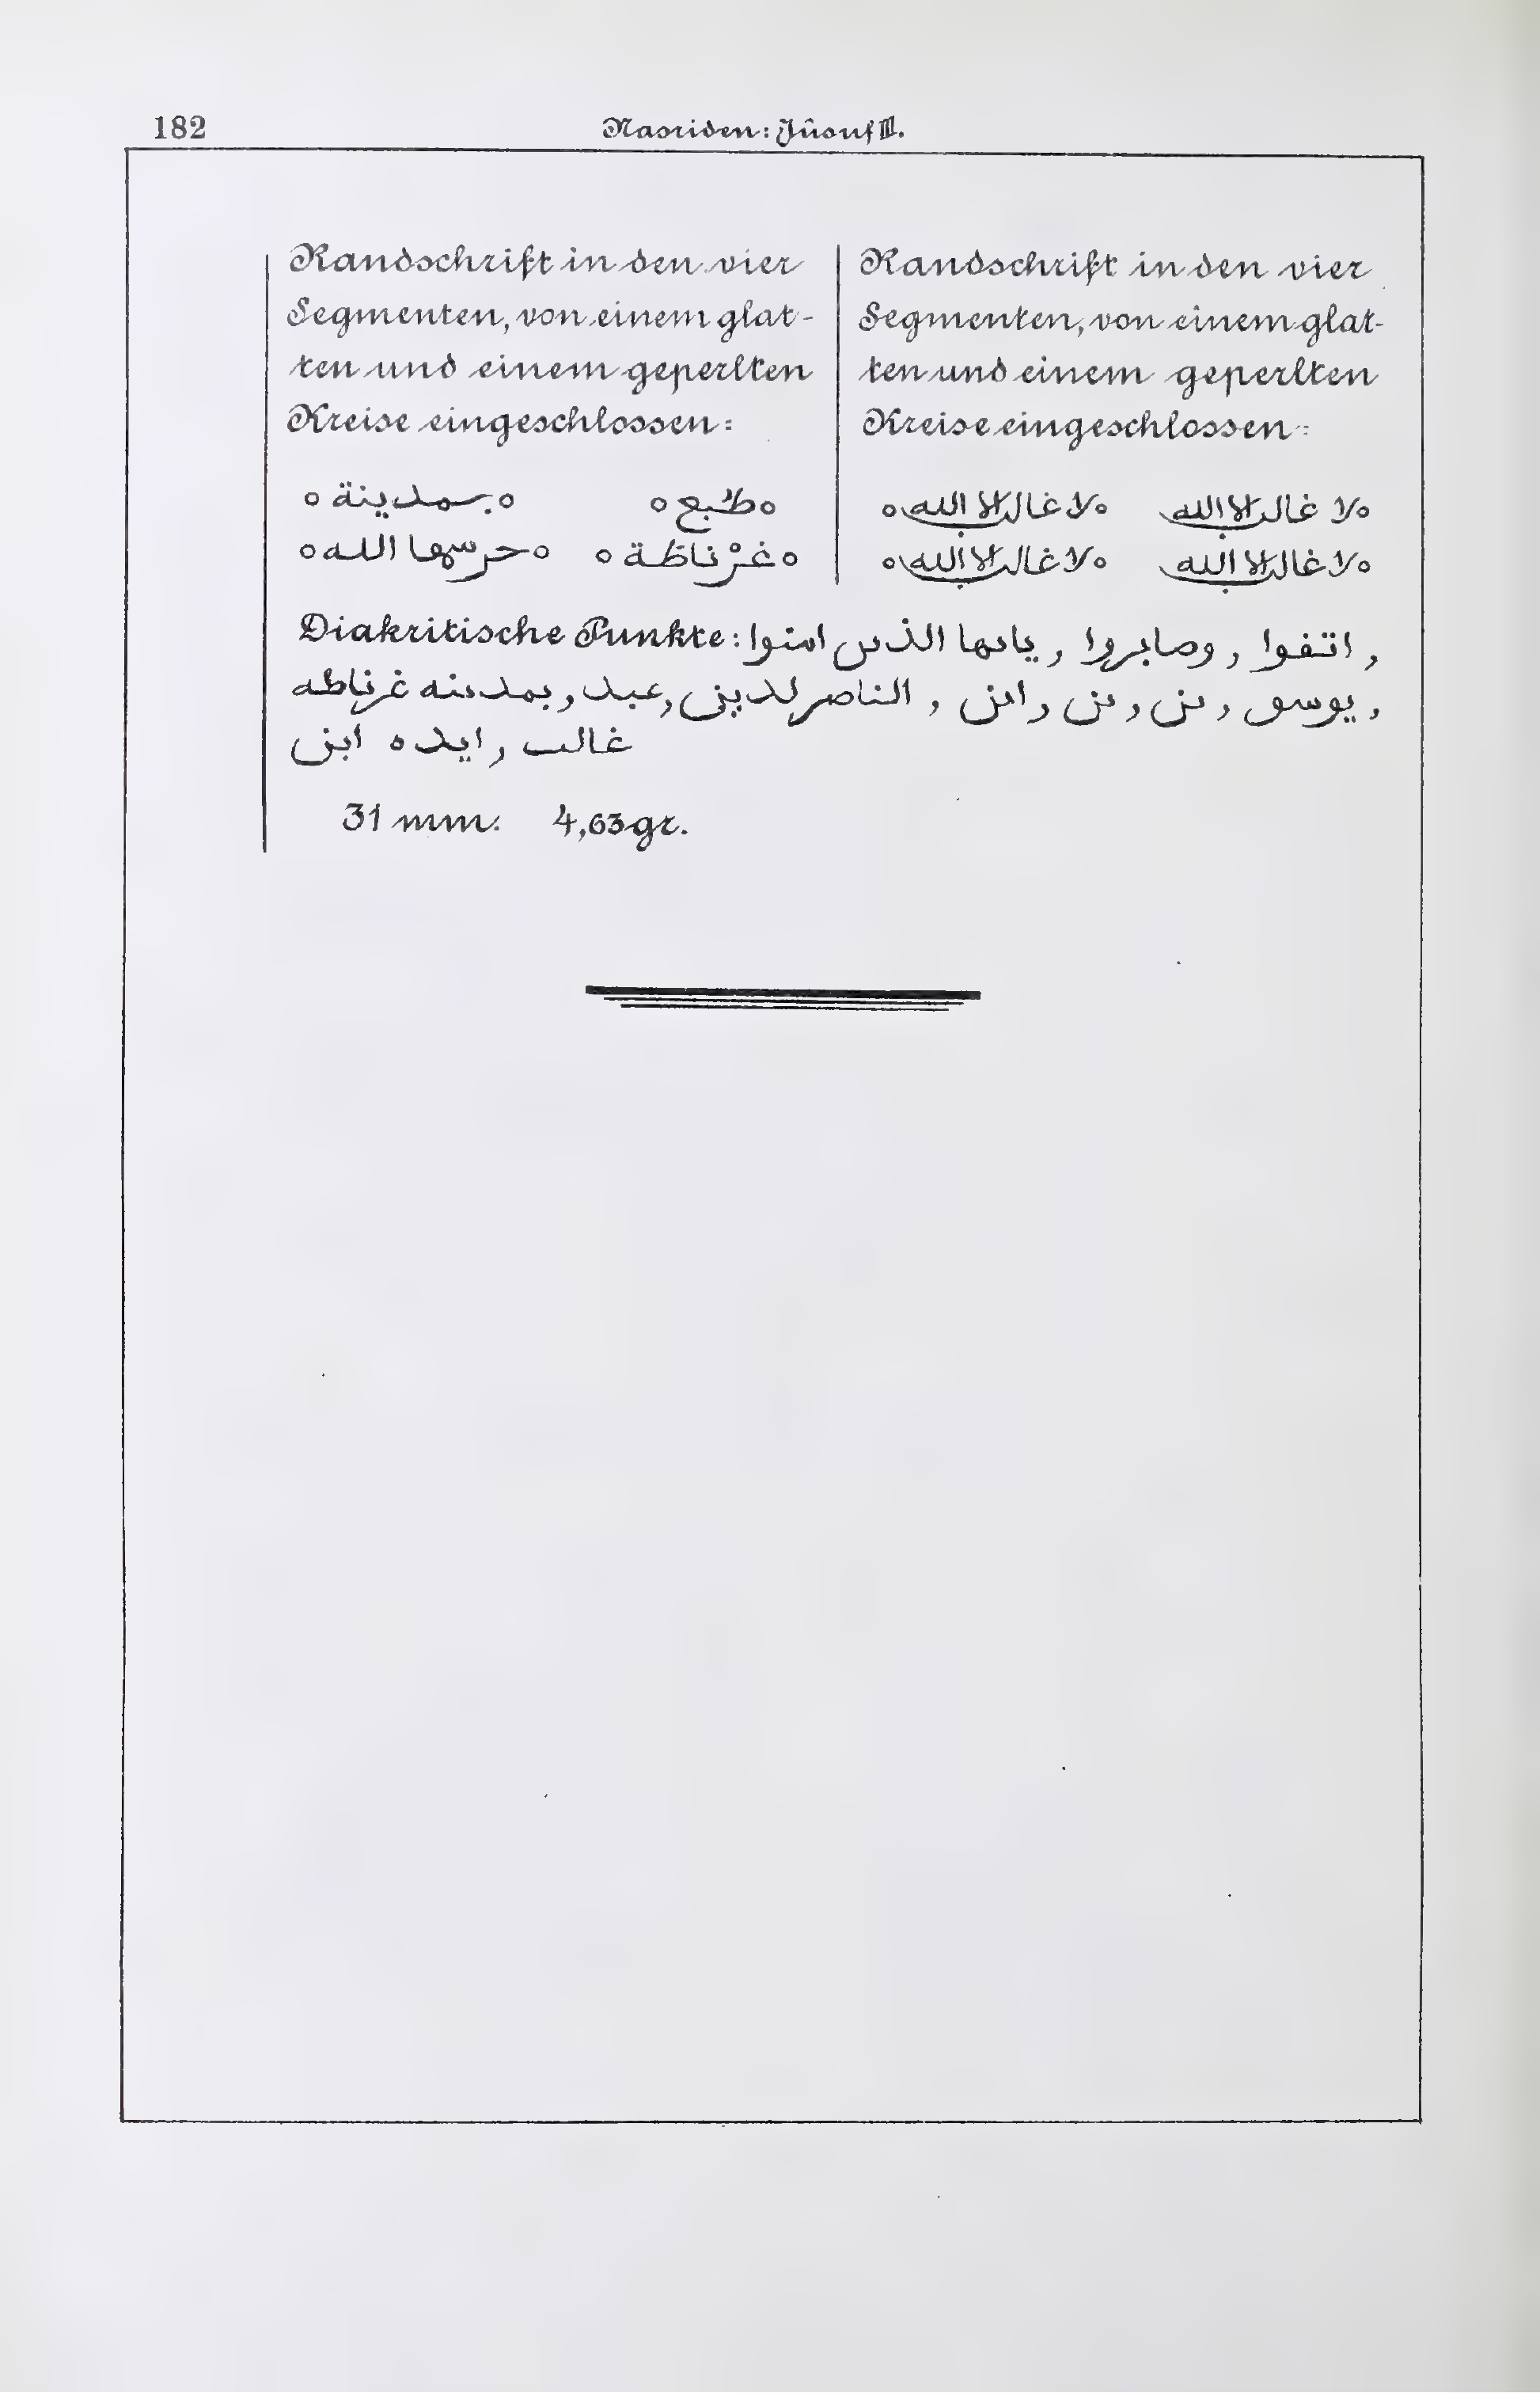 182
Nasriden: Jûsuf III.
Randschrift in den vier
Segmenten, von einem glat-
ten und einem geperlten
Kreise eingeschlossen:
o طبع o o بمدينة o
o غرناطة o o حرسها الله o
Randschrift in den vier
Segmenten, von einem glat-
ten und einem geperlten
Kreise eingeschlossen:
o لا غالب الا الله o لا غالب الا الله o
o لا غالب الا الله o لا غالب الا الله o
Diakritische Punkte: اتفوا , وصابروا , ياىها الذىں امنوا ,
, يوسو , ىن , ىن , اىن , الناصر لديں , عبد , بمدىنه غرناطه
غالب , ايده ابن
31 mm. 4,63 gr.